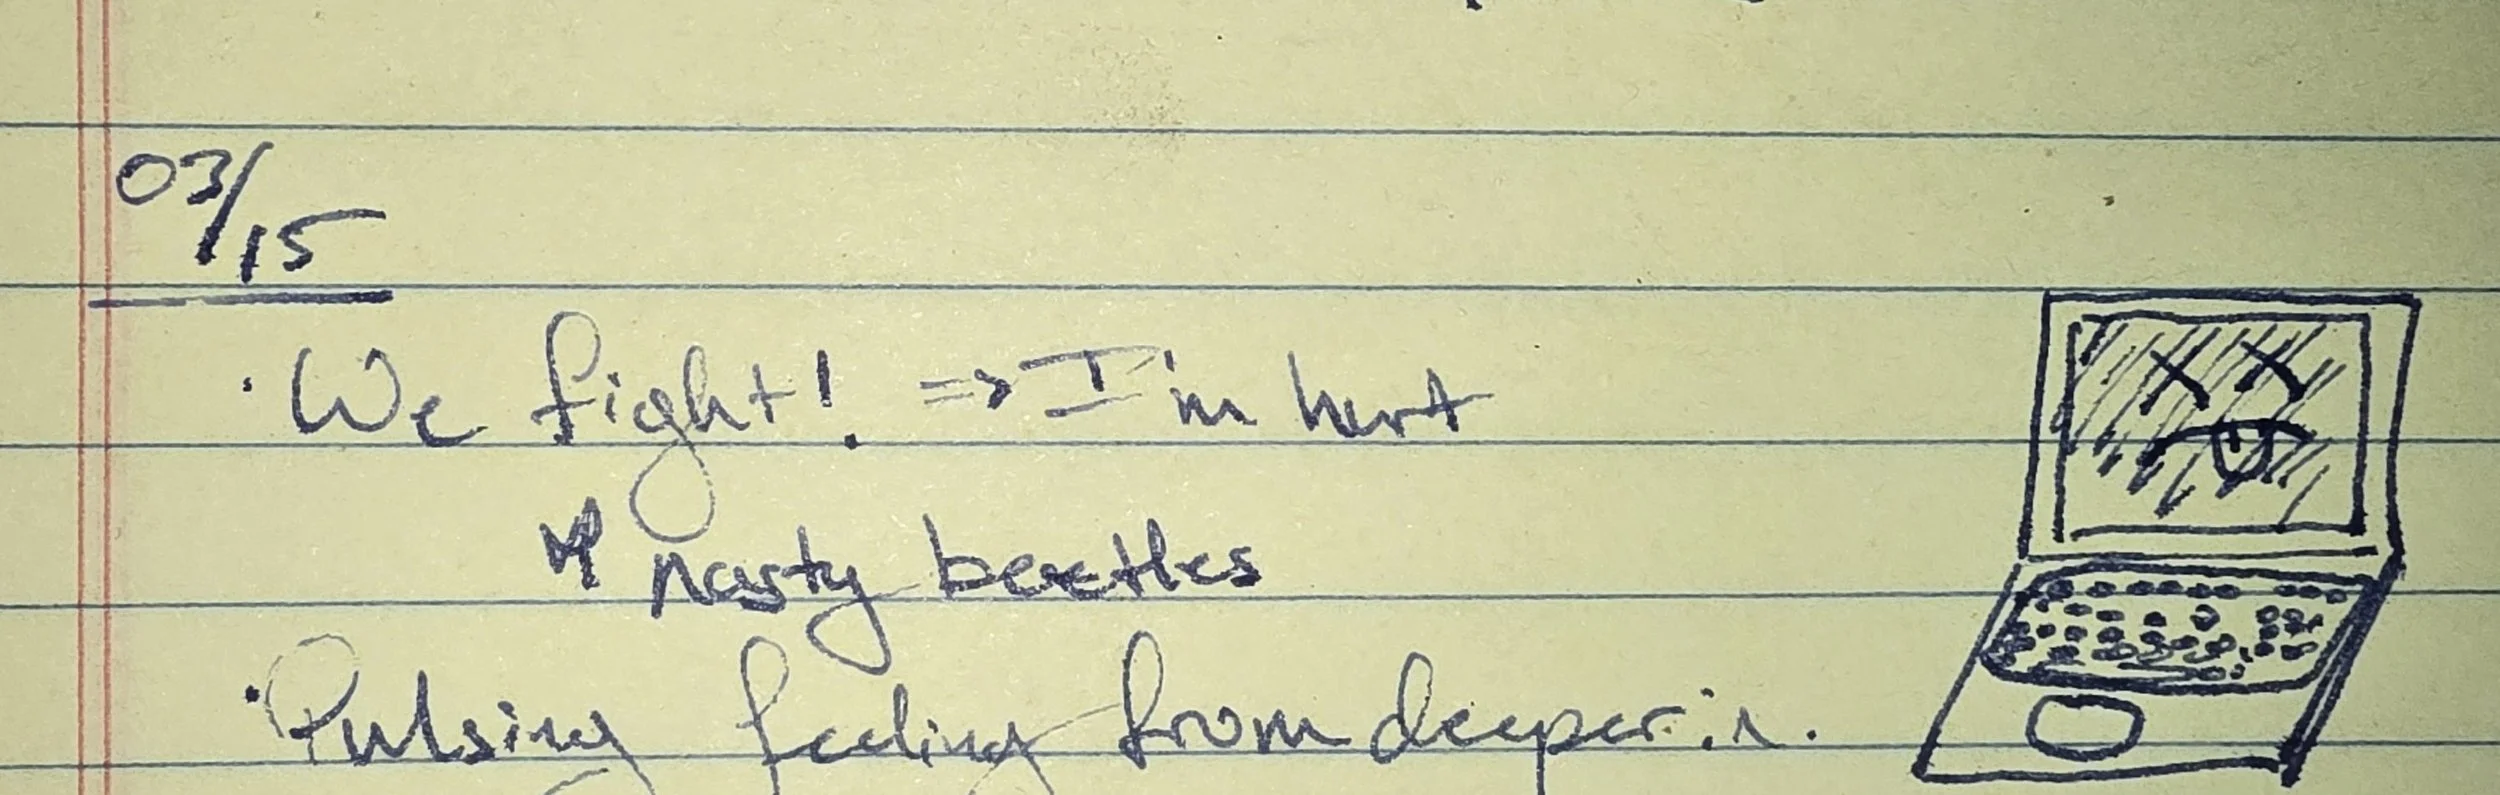 03/15
· We fight! => I'm hurt
nasty beetles
· Pulsing feeling from deeper in.